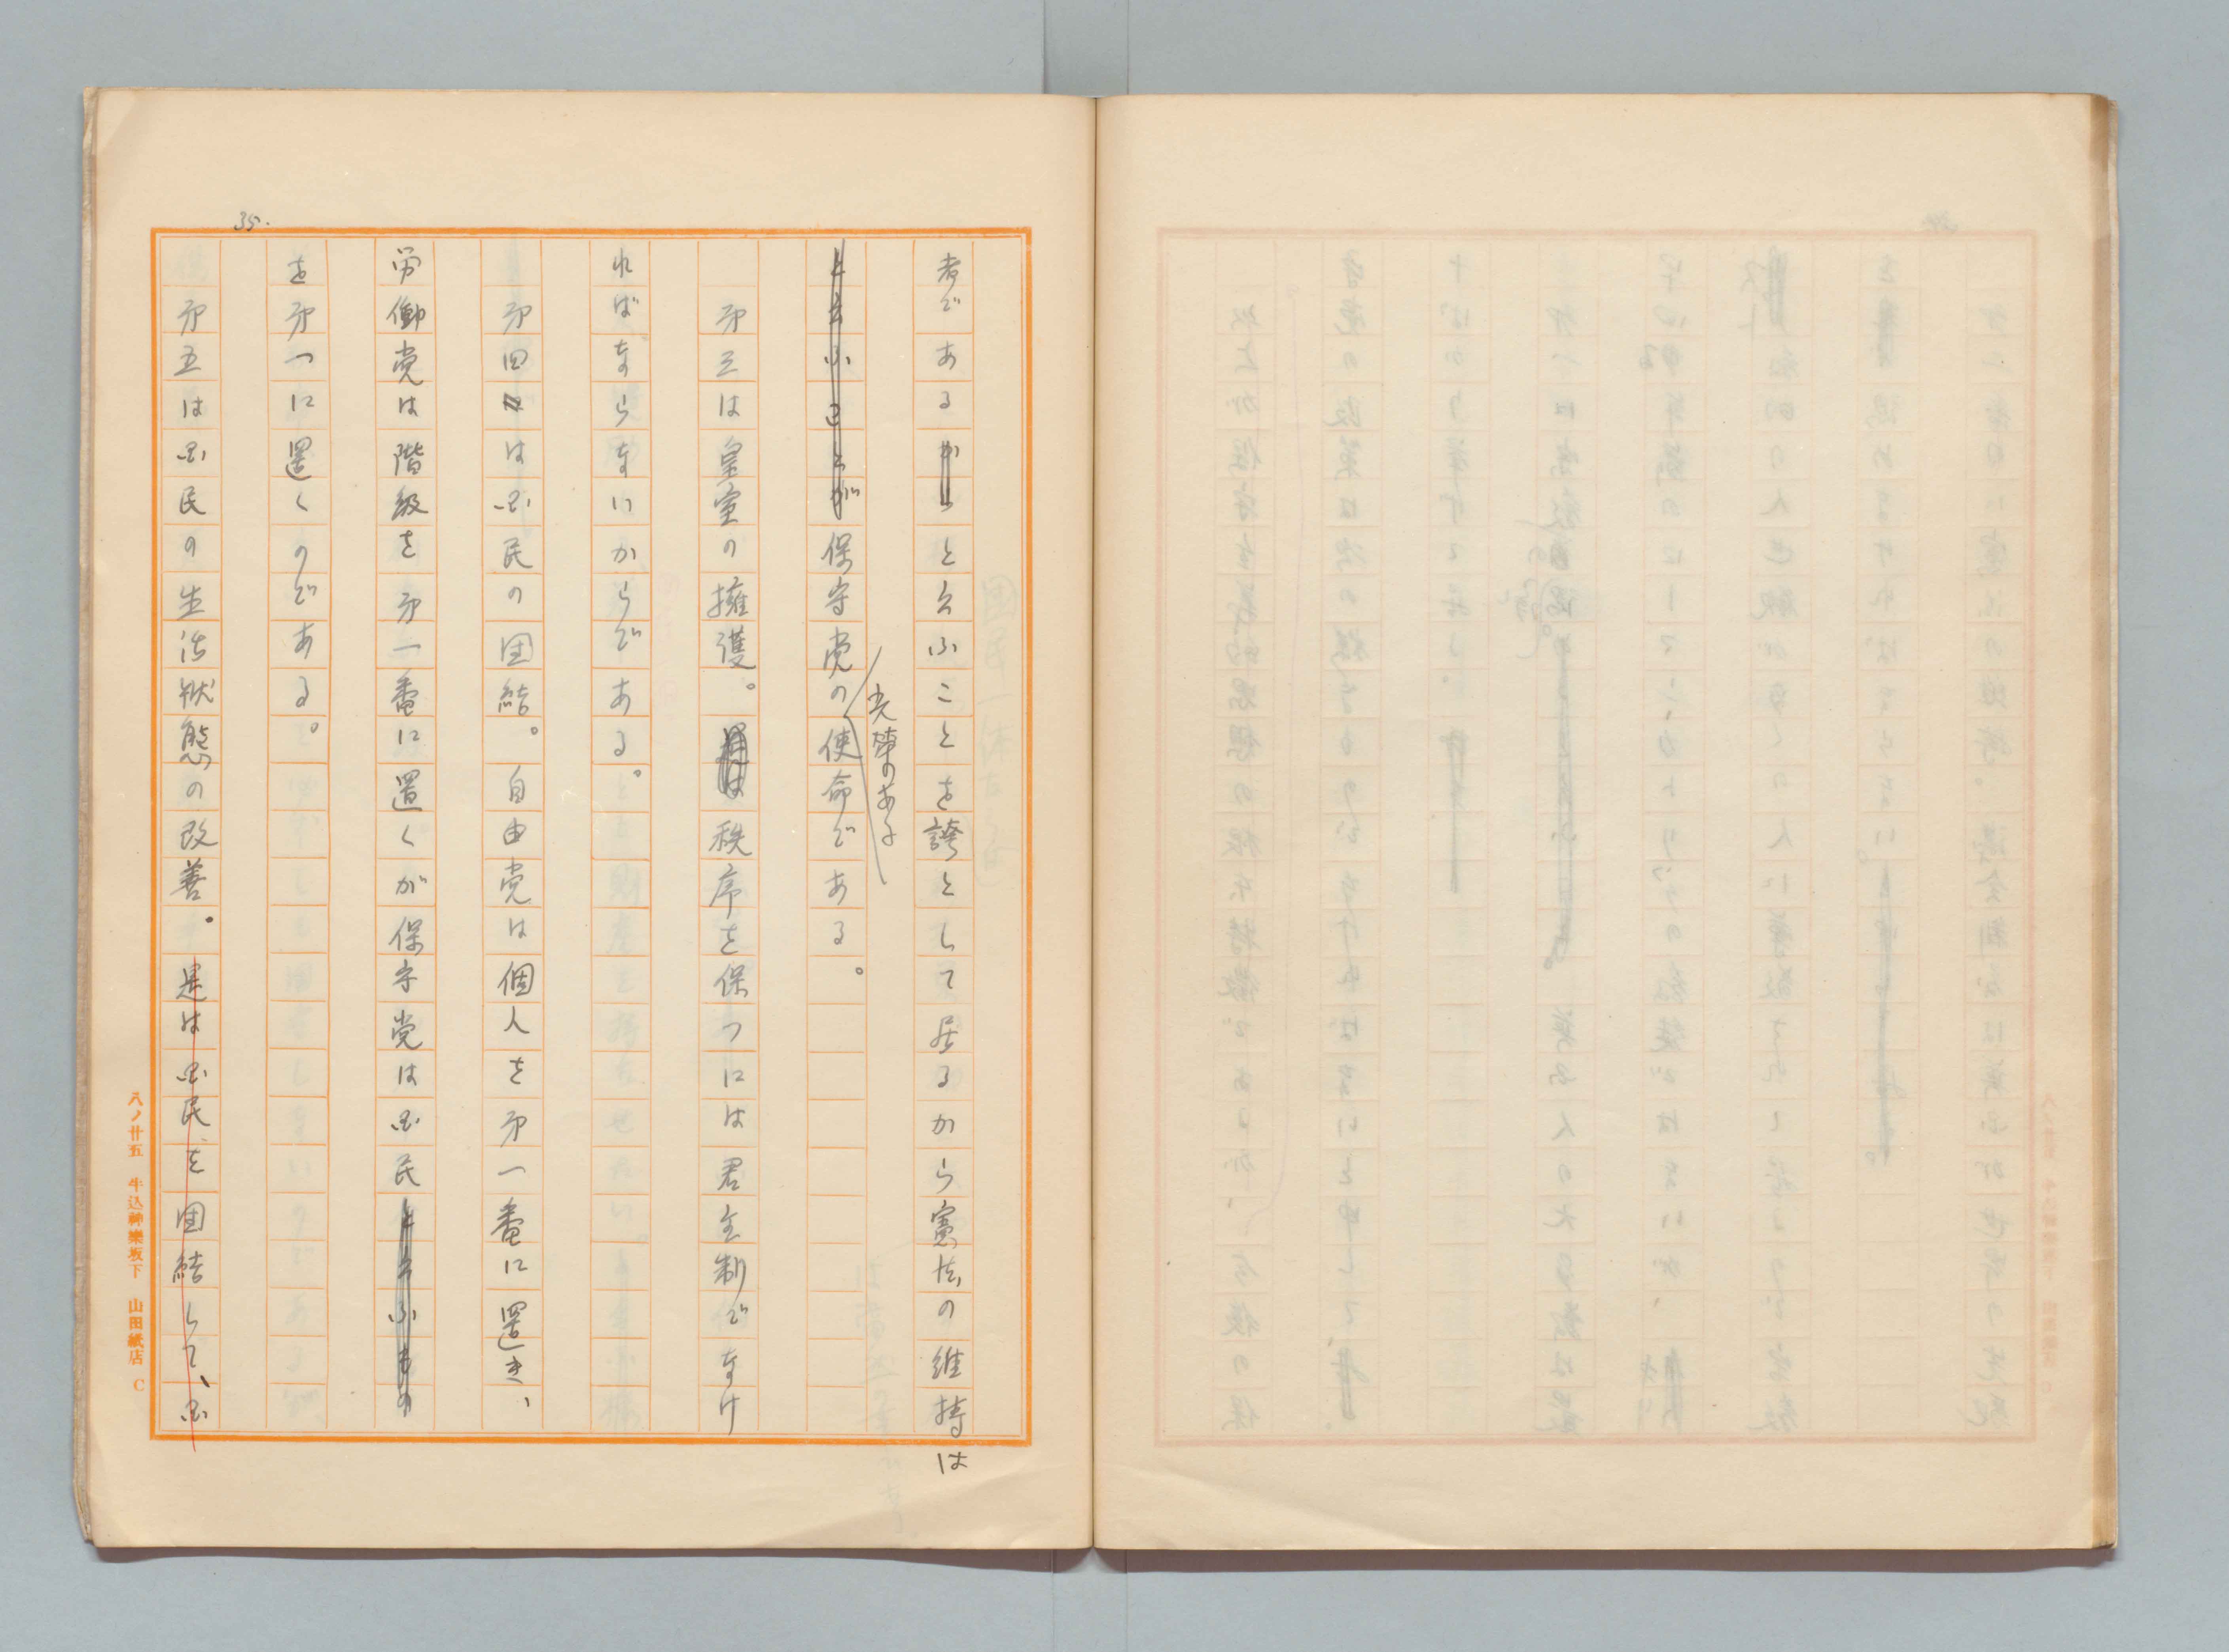 35.
者であるからと云ふことを誇として居るから憲法の維持は
と云ふことが保守党の使命である。
光榮のある
第三は皇室の擁護。秩序を保つには君主制でなけ
ればならないからである。
第四は国民の団結。自由党は個人を第一番に置き、
労働党は階級を第一番に置くが保守党は国民と云ふもの
を第一に置くのである。
第五は国民の生活状態の改善。是は国民を団結して、国
八ノ廿五 牛込神樂坂下 山田紙店 C